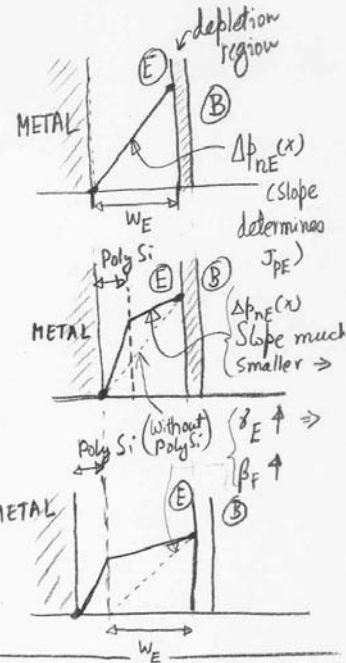 depletion
region
E
B
METAL
Δp_nE(x)
(Slope
determines
J_PE)
W_E
Poly Si
E
B
METAL
Δp_nE(x)
Slope much
smaller ⇒
Poly Si (Without
Poly Si)
γ_E ↑ ⇒
β_F ↑
METAL
E
B
W_E